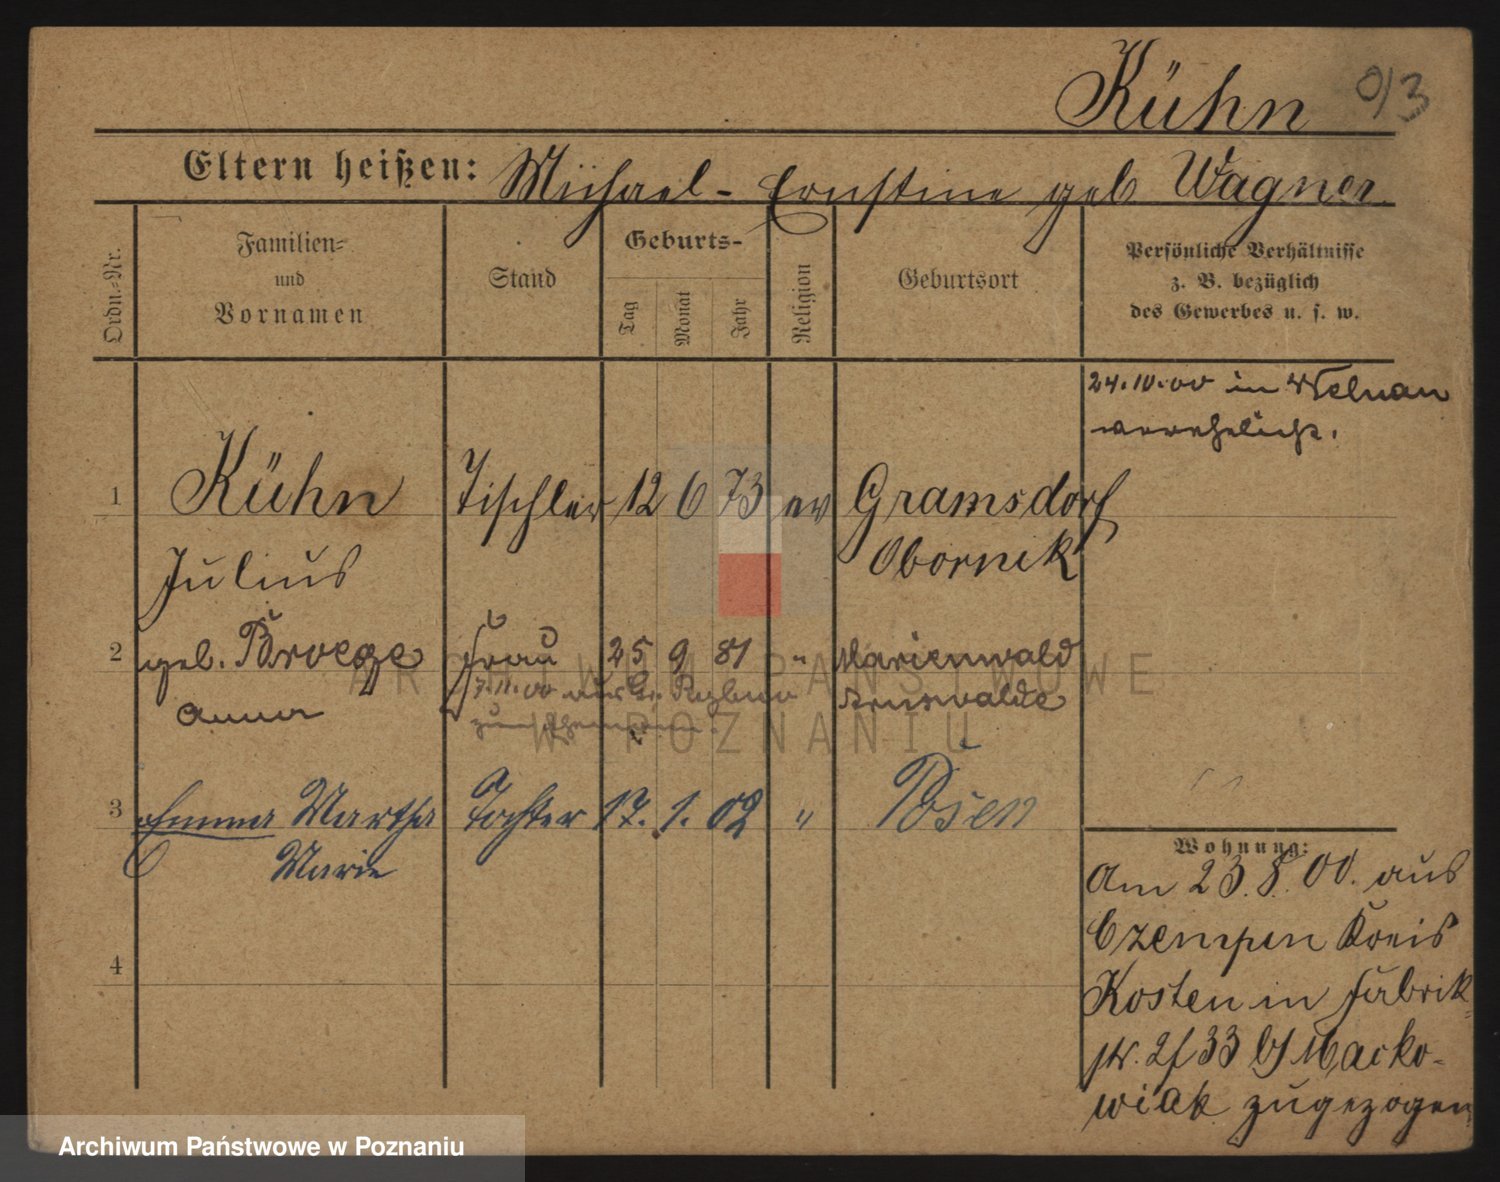 Kühn 0/3
Eltern heißen: Michael - Ernstine geb Wagner.
Ordn.-Nr.
Familien- und Vornamen
Stand
Geburts-
Tag
Monat
Jahr
Religion
Geburtsort
Persönliche Verhältnisse
z. B. bezüglich
des Gewerbes u. s. w.
24.10.00 in Welnau
verehelicht.
1 Kühn Tischler 12 6 73 ev Gramsdorf
Julius Obornik
2 geb. Broege Frau 25 9 81 " Marienwald
Anna Arnswalde
7.11.00 aus Gr.
zum Ehemann.
3 Emma Martha Tochter 17. 1. 02 " Posen
Marie
4
Wohnung:
Am 23.8.00. aus
Czempin Kreis
Kosten in Fabrik-
str. 2/33 b/ Macko-
wiak zugezogen
ARCHIWUM PAŃSTWOWE
W POZNANIU
Archiwum Państwowe w Poznaniu